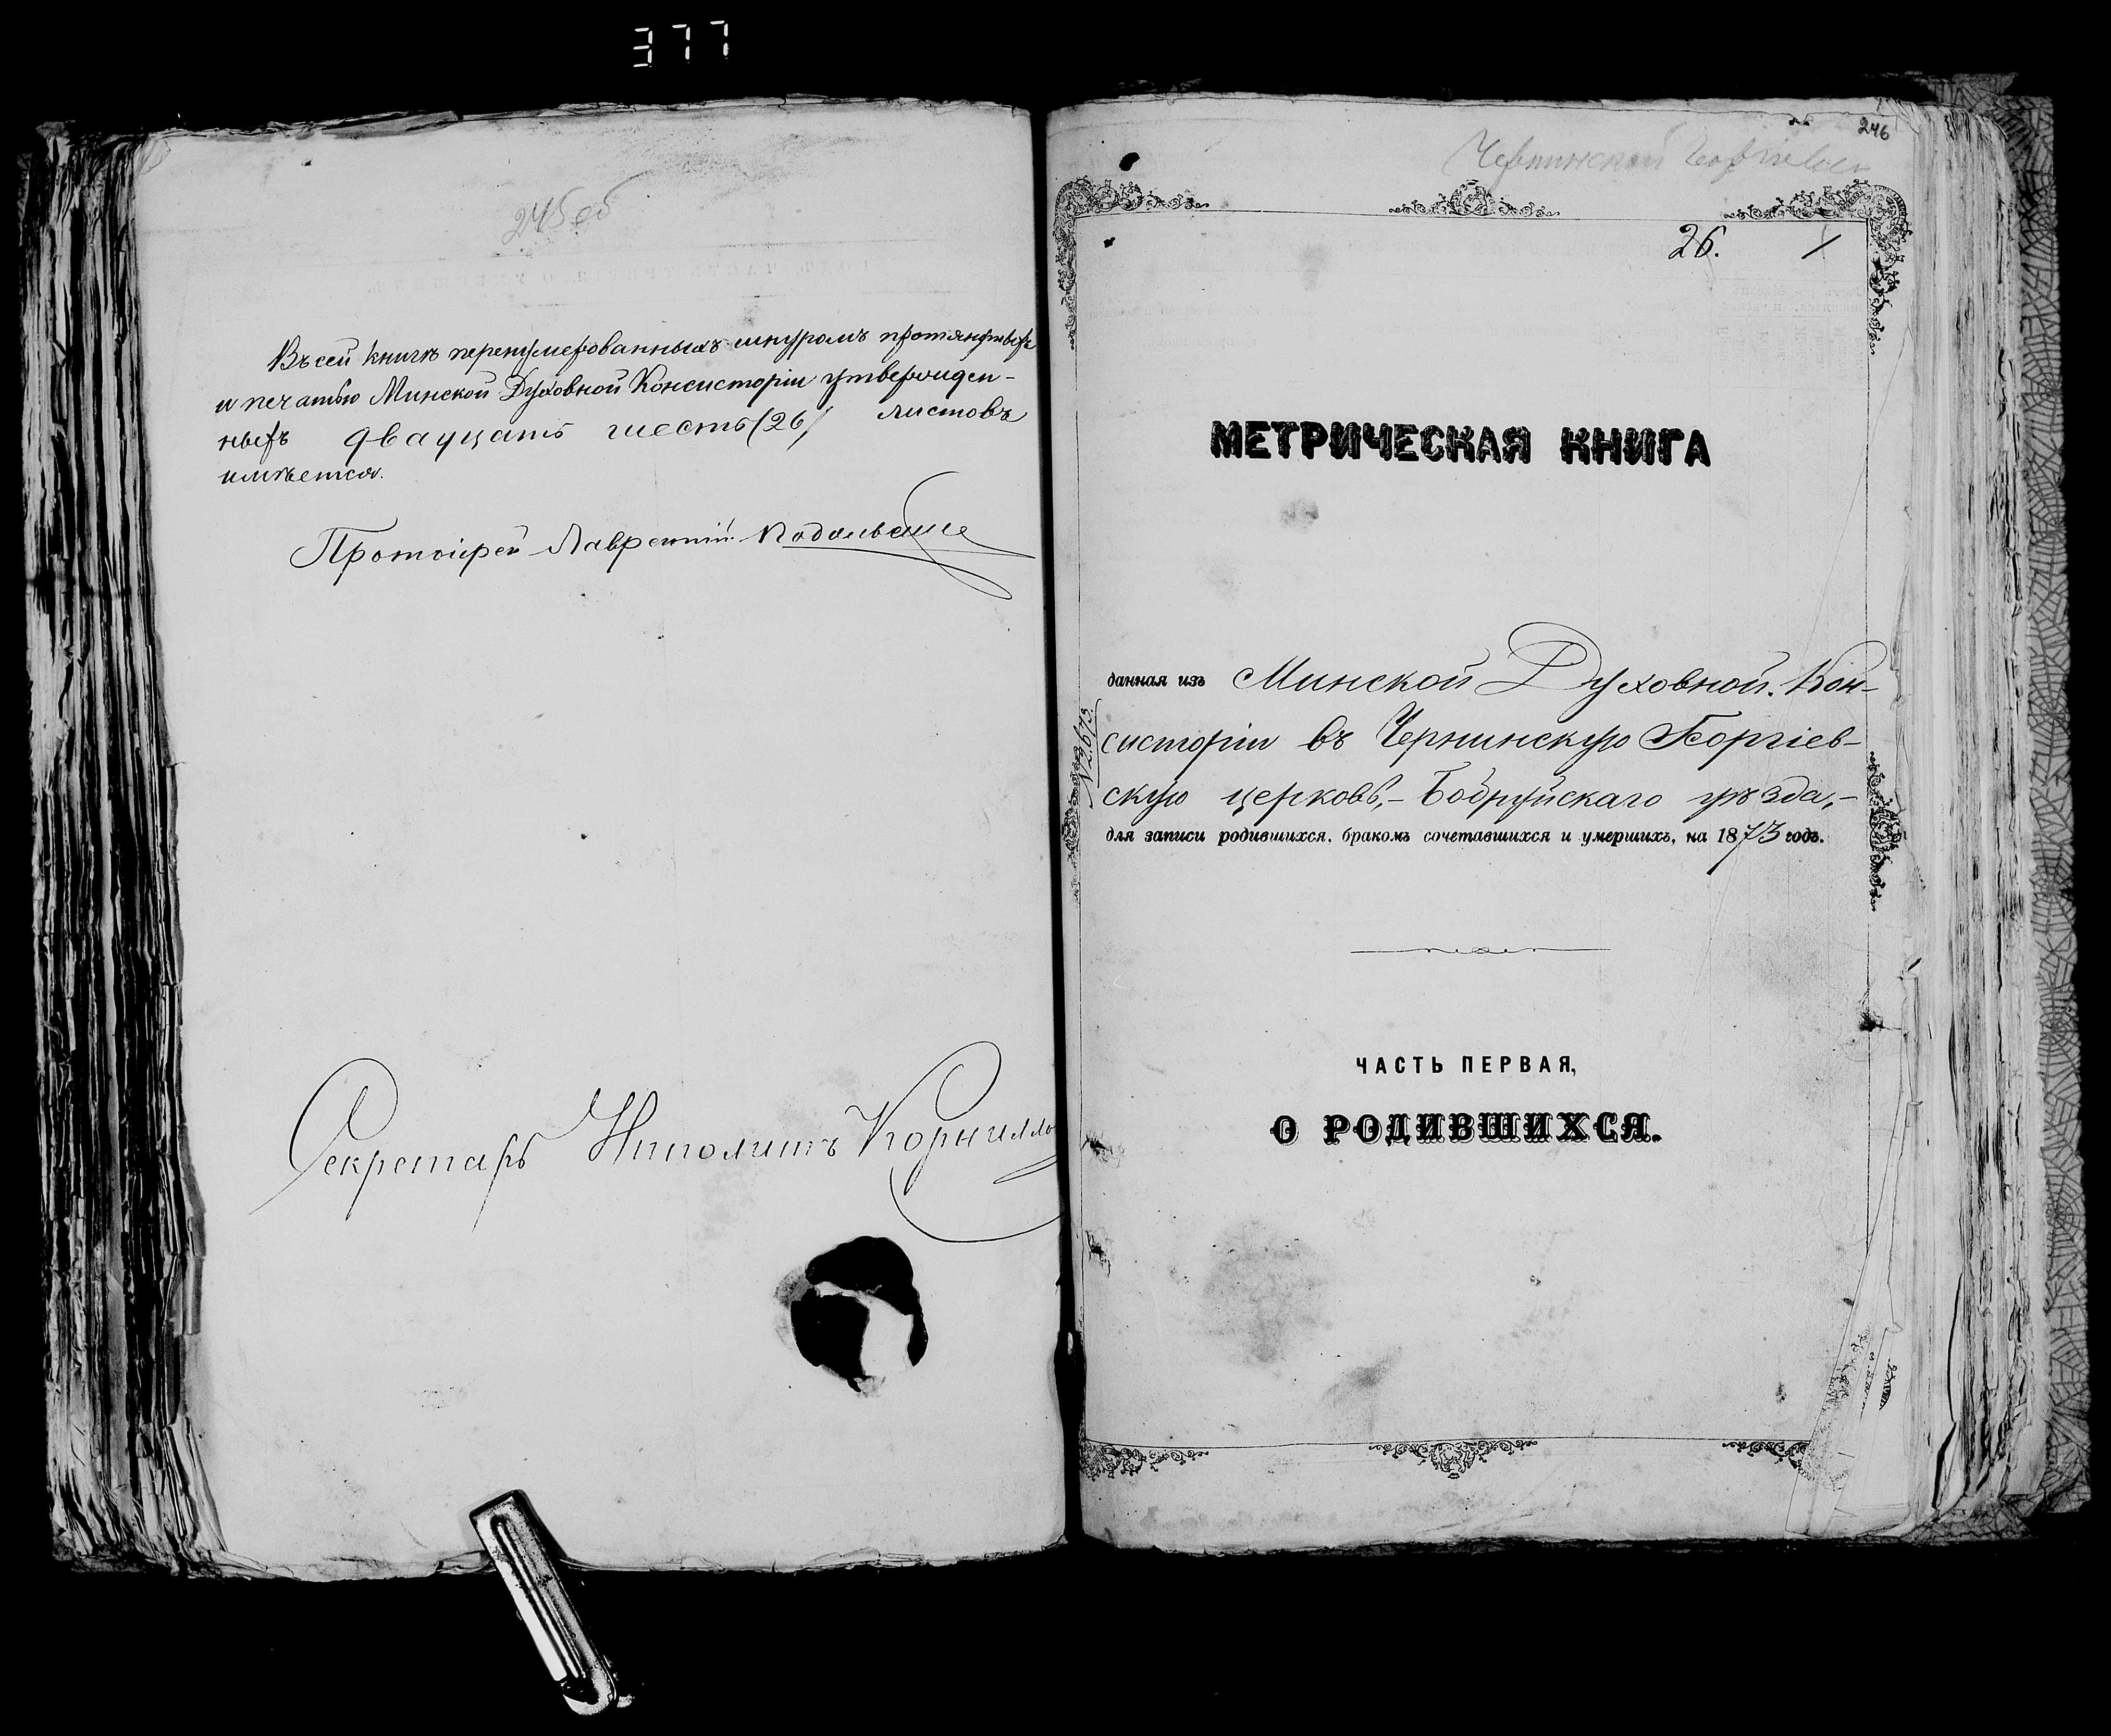 377
245 об
Въ сей книгѣ перенумерованныхъ шнуромъ протянутыхъ
и печатью Минской Духовной Консисторіи утвержден-
ныхъ двадцать шесть (26) листовъ
имѣется.
Протоіерей Лаврентій
Секретарь Иполитъ Корнилло
246
26. 1
МЕТРИЧЕСКАЯ КНИГА
данная изъ Минской Духовной Кон-
систоріи въ Чернинскую Георгіев-
скую церковь,- Бобруйскаго уѣзда,-
для записи родившихся, бракомъ сочетавшихся и умершихъ, на 1873 годъ.
№ 2673.
ЧАСТЬ ПЕРВАЯ,
О РОДИВШИХСЯ.